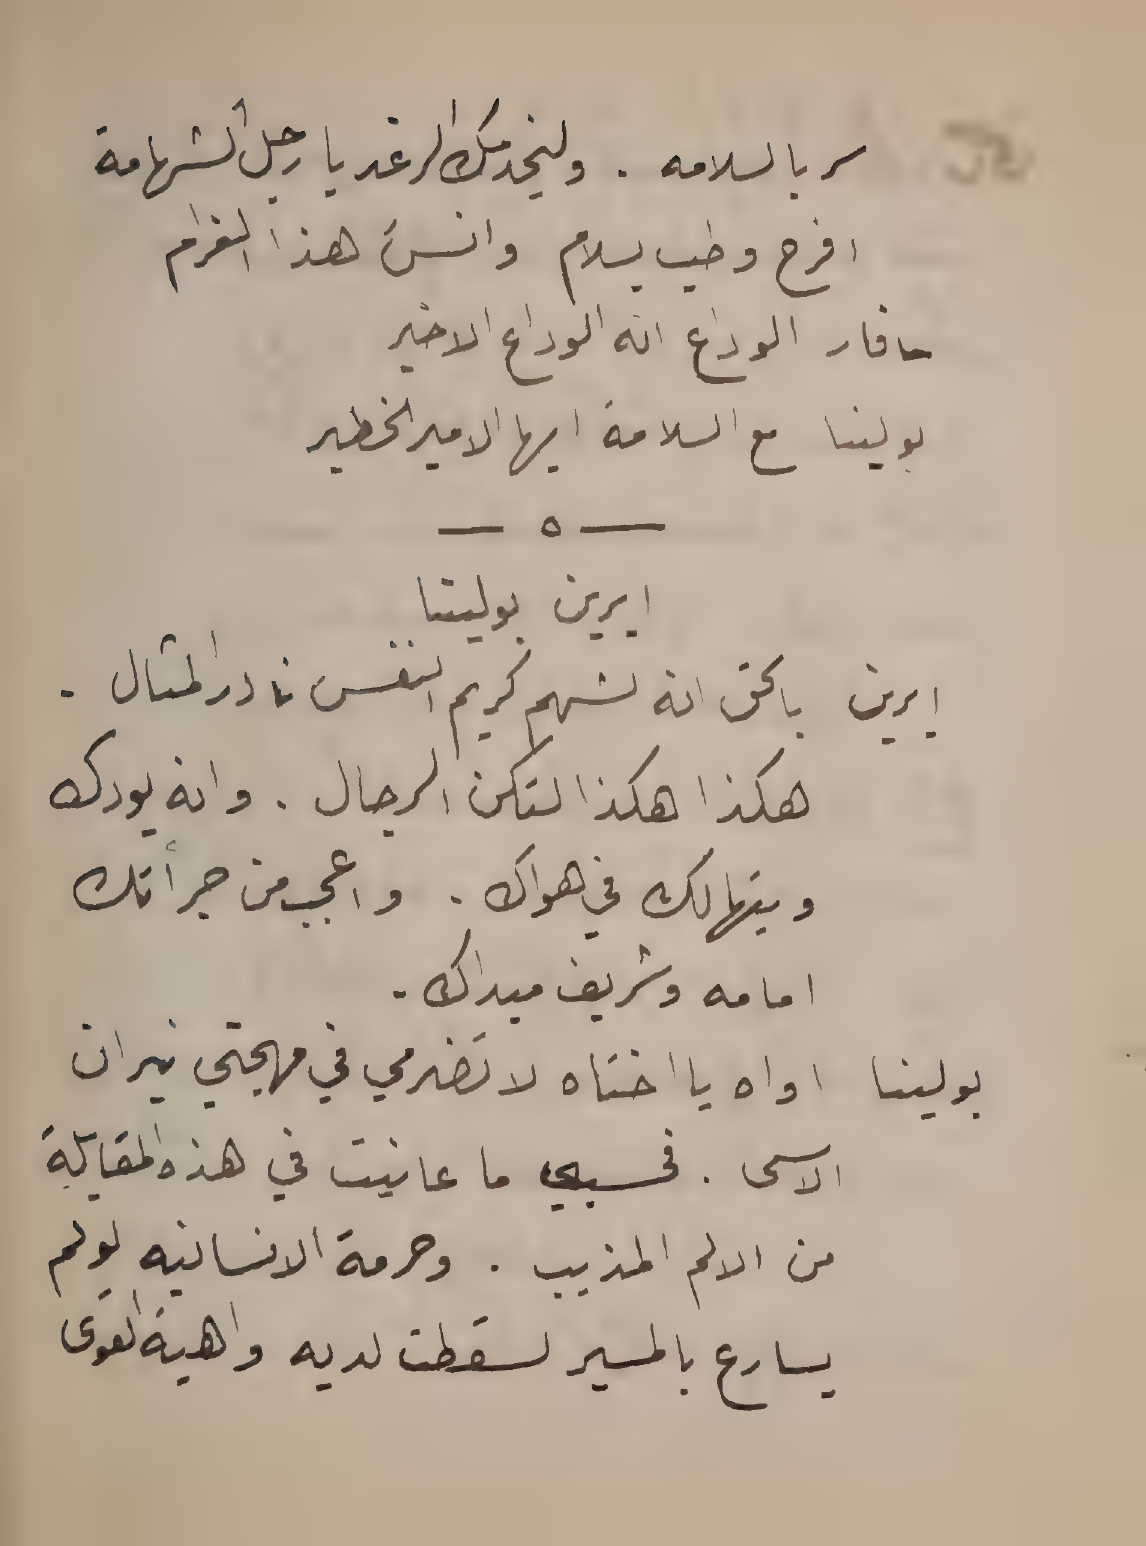 سر بالسلامه . وليخدمك الرغد يا رجل الشهامة
افرح وطيب بسلام وانسَ هذا الغرام
سافار الوداع انه الوداع الاخير
بولينا مع السلامة ايها الامير الخطير
— ٥ —
ايرين بولينا
ايرين بالحق انه لشهم كريم النفس نادر المثال .
هكذا هكذا لتكن الرجال . وانه يودك
ويتهالك في هواك . واعجب من جرأتك
امامه وشريف مبداك .
بولينا اواه يا اختاه لا تضرمي في مهجتي نيران
الاسى . فحسبي ما عانيت في هذه المقابلة
من الالم المذيب . وحرمة الانسانيه لو لم
يسارع بالمسير لسقطت لديه واهية القوى